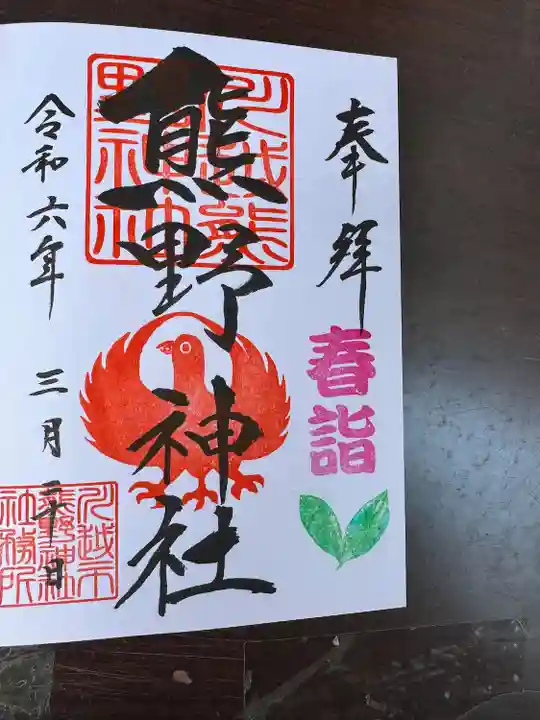 奉拝
春詣
熊野神社
川越熊野神社
令和六年 三月二十日
川越市熊野神社社務所